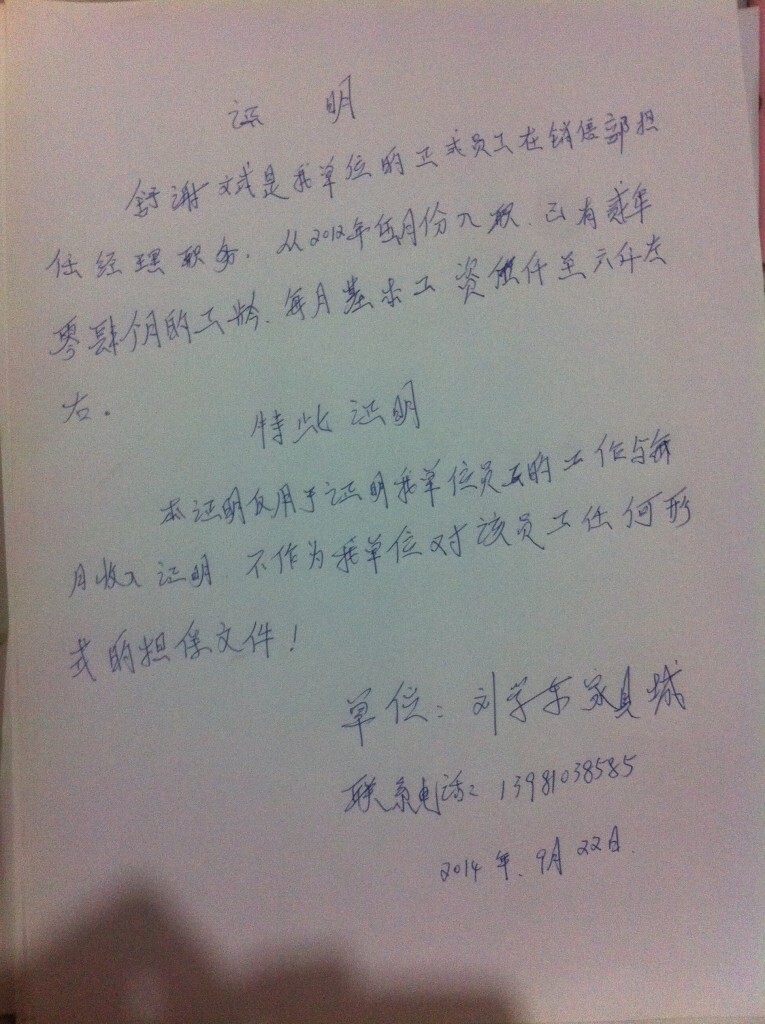 证 明
舒谢斌是我单位的正式员工在销售部担
任经理职务.从2012年伍月份入职.已有贰年
零肆个月的工龄.每月基本工资伍仟至六仟左
右。
特此证明
本证明仅用于证明我单位员工的工作与每
月收入证明.不作为我单位对该员工任何形
式的担保文件!
单位:刘学东家具城
联系电话:13981038585
2014年.9月22日.